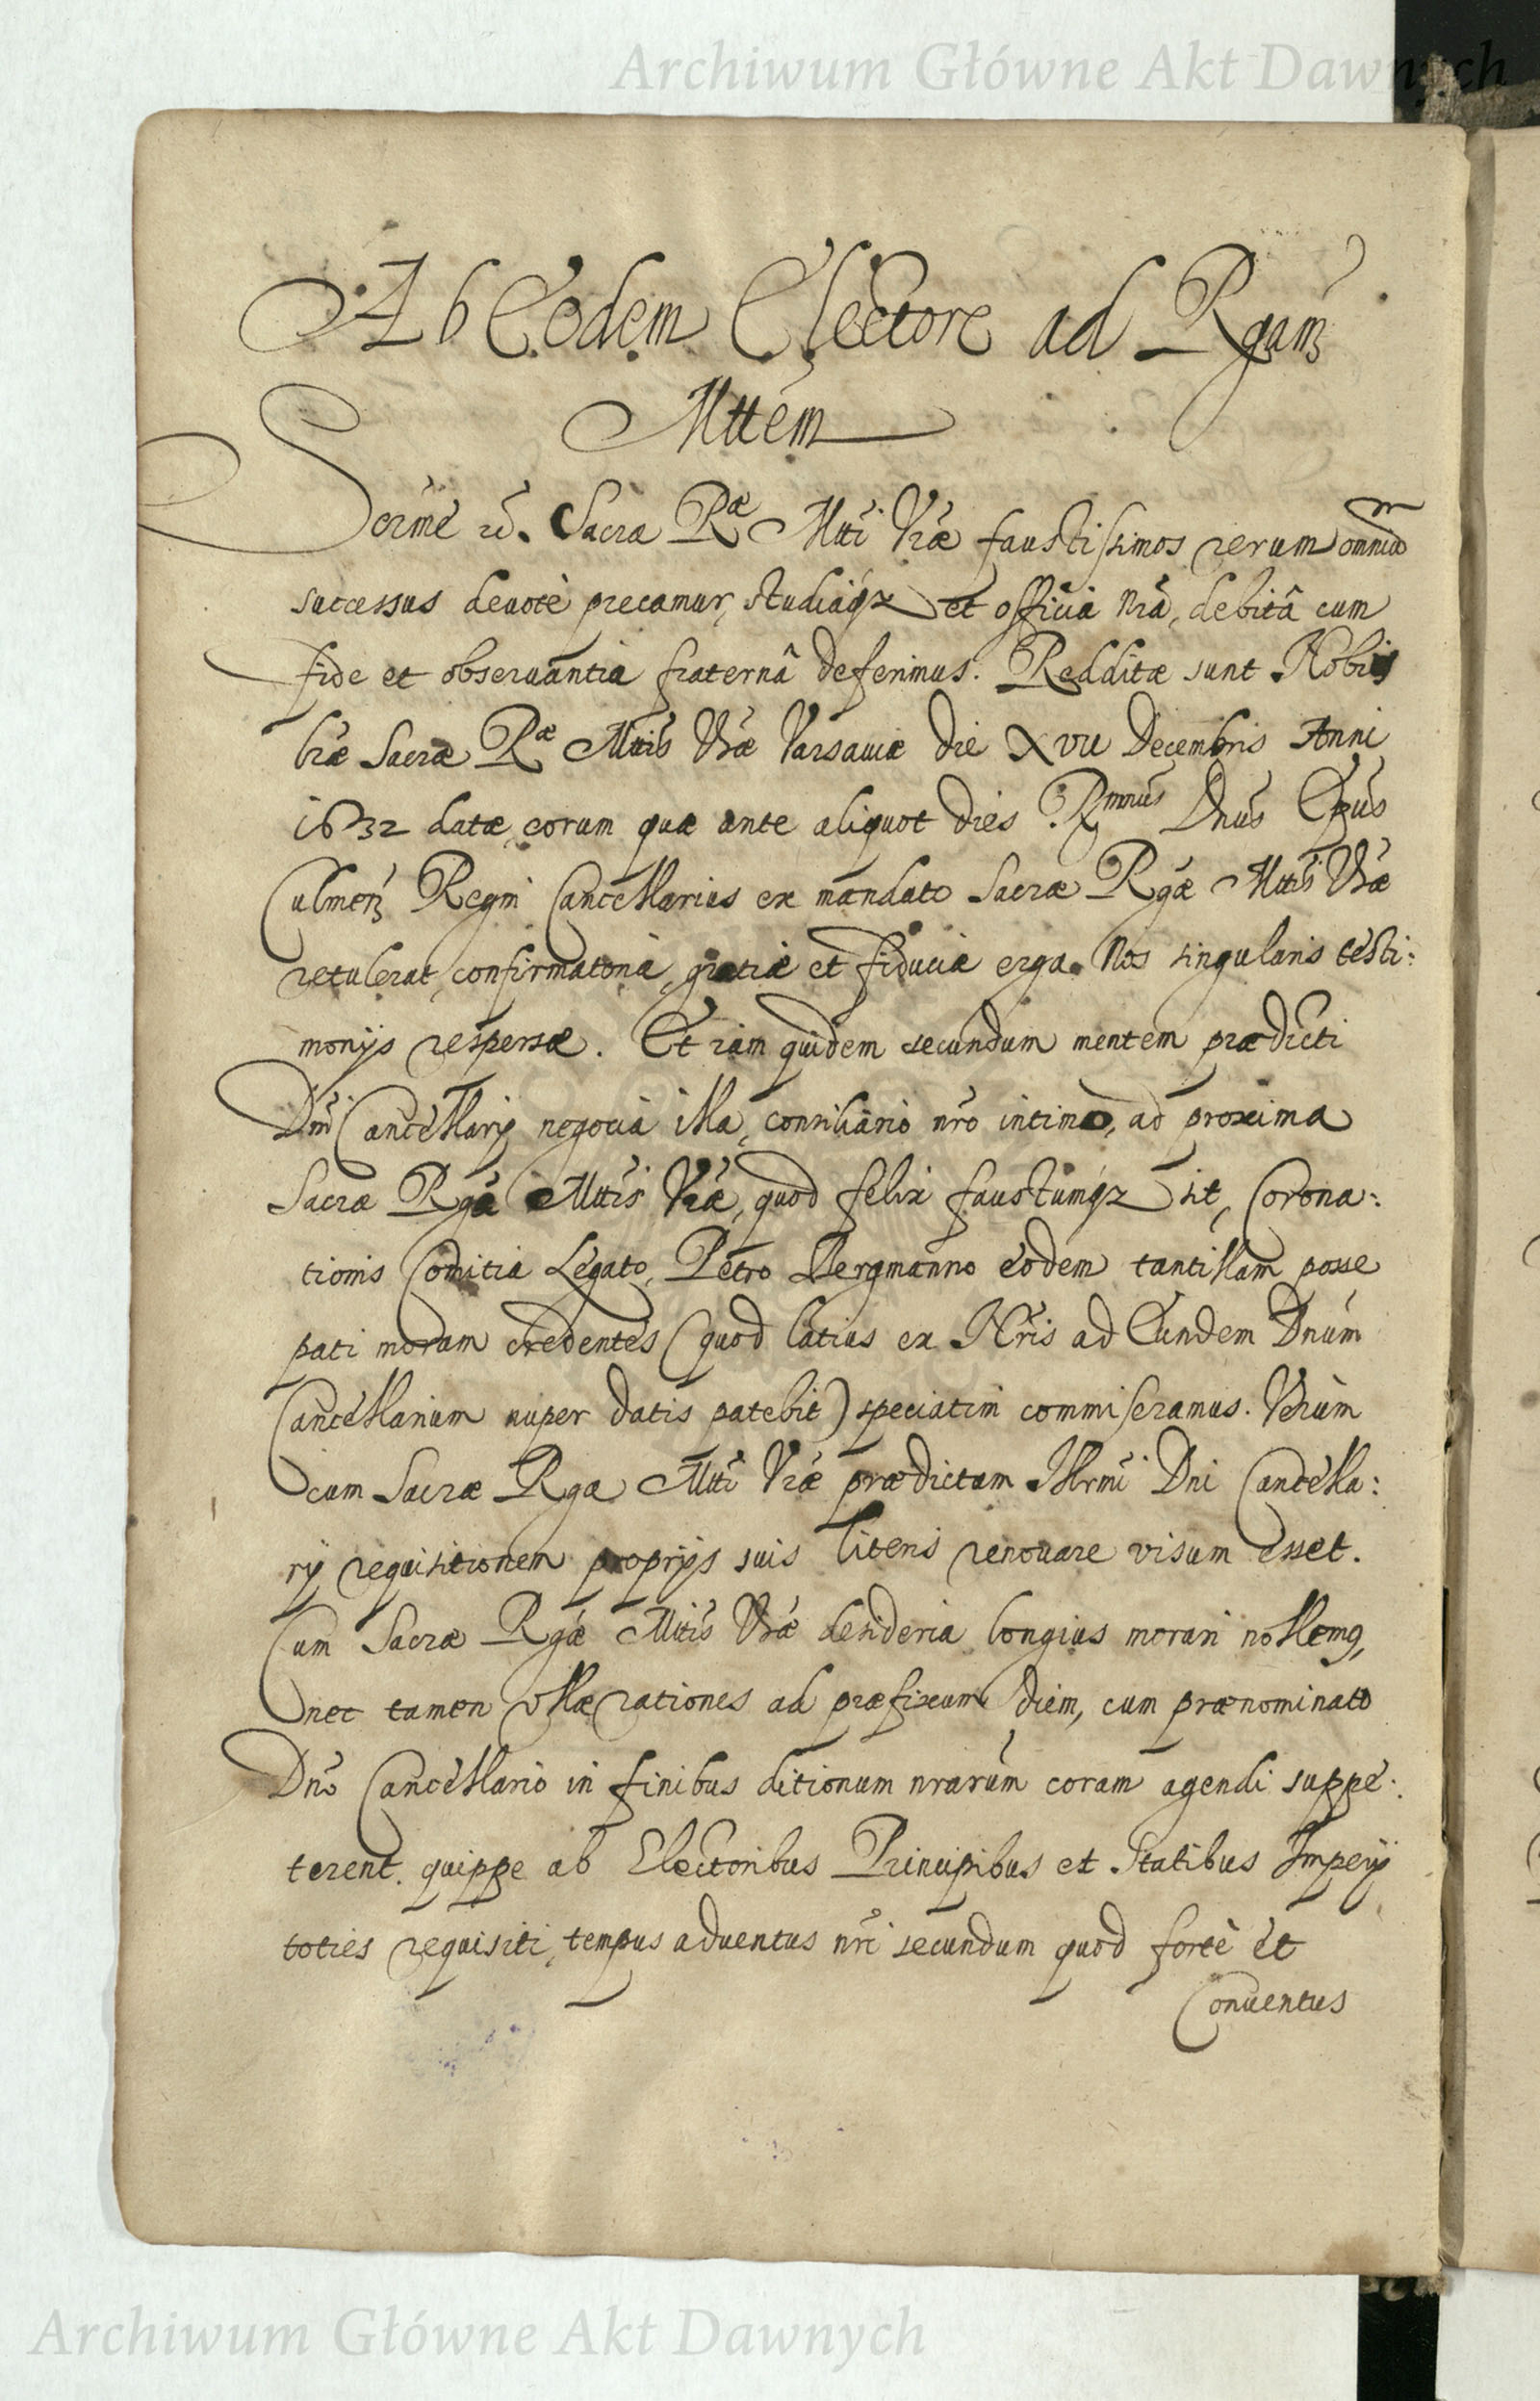 Archiwum Główne Akt Dawnych
Ab Eodem Electore ad Rgam
Mttem
Serme etc. Sacræ Ræ Mtti Vræ faustissimos rerum omnium
successus devotè precamur, studiaq; et officia nra, debitâ cum
fide et obseruantia fraternâ deferimus. Redditæ sunt Nobis
lræ Sacræ Ræ Mttis Vræ Varsauiæ die XVII Decembris Anni
1632 datæ, eorum quæ ante aliquot dies Rmus Dnus Epus
Culmen Regni Cancellarius ex mandato Sacræ Rgæ Mttis Vræ
retulerat, confirmatoriæ, gratiæ et fiduciæ erga Nos singularis testi:
monijs respersæ. Et iam quidem secundum mentem prædicti
Dni Cancellarij negocia illa, consiliario nro intimo, ad proxima
Sacræ Rgæ Mttis Vræ, quod felix faustumq; sit, Corona:
tionis Comitia Legato, Petro Bergmanno eodem tantillam posse
pati moram credentes (quod latius ex Nris ad Eundem Dnum
Cancellarium nuper datis patebit) speciatim commiseramus. Verùm
cum Sacræ Rgæ Mtti Vræ prædictam Illrmi Dni Cancella:
rij requisitionem proprijs suis literis renouare visum esset.
Cum Sacræ Rgæ Mttis Vræ desideria longius morari nollemq,
nec tamen ullæ rationes ad præfixum diem, cum prænominato
Dno Cancellario in finibus ditionum nrarum coram agendi suppe:
terent. quippe ab Electoribus Principibus et Statibus Imperij
toties requisiti, tempus aduentus nri secundum quod fortè et
Conuentus
Archiwum Główne Akt Dawnych